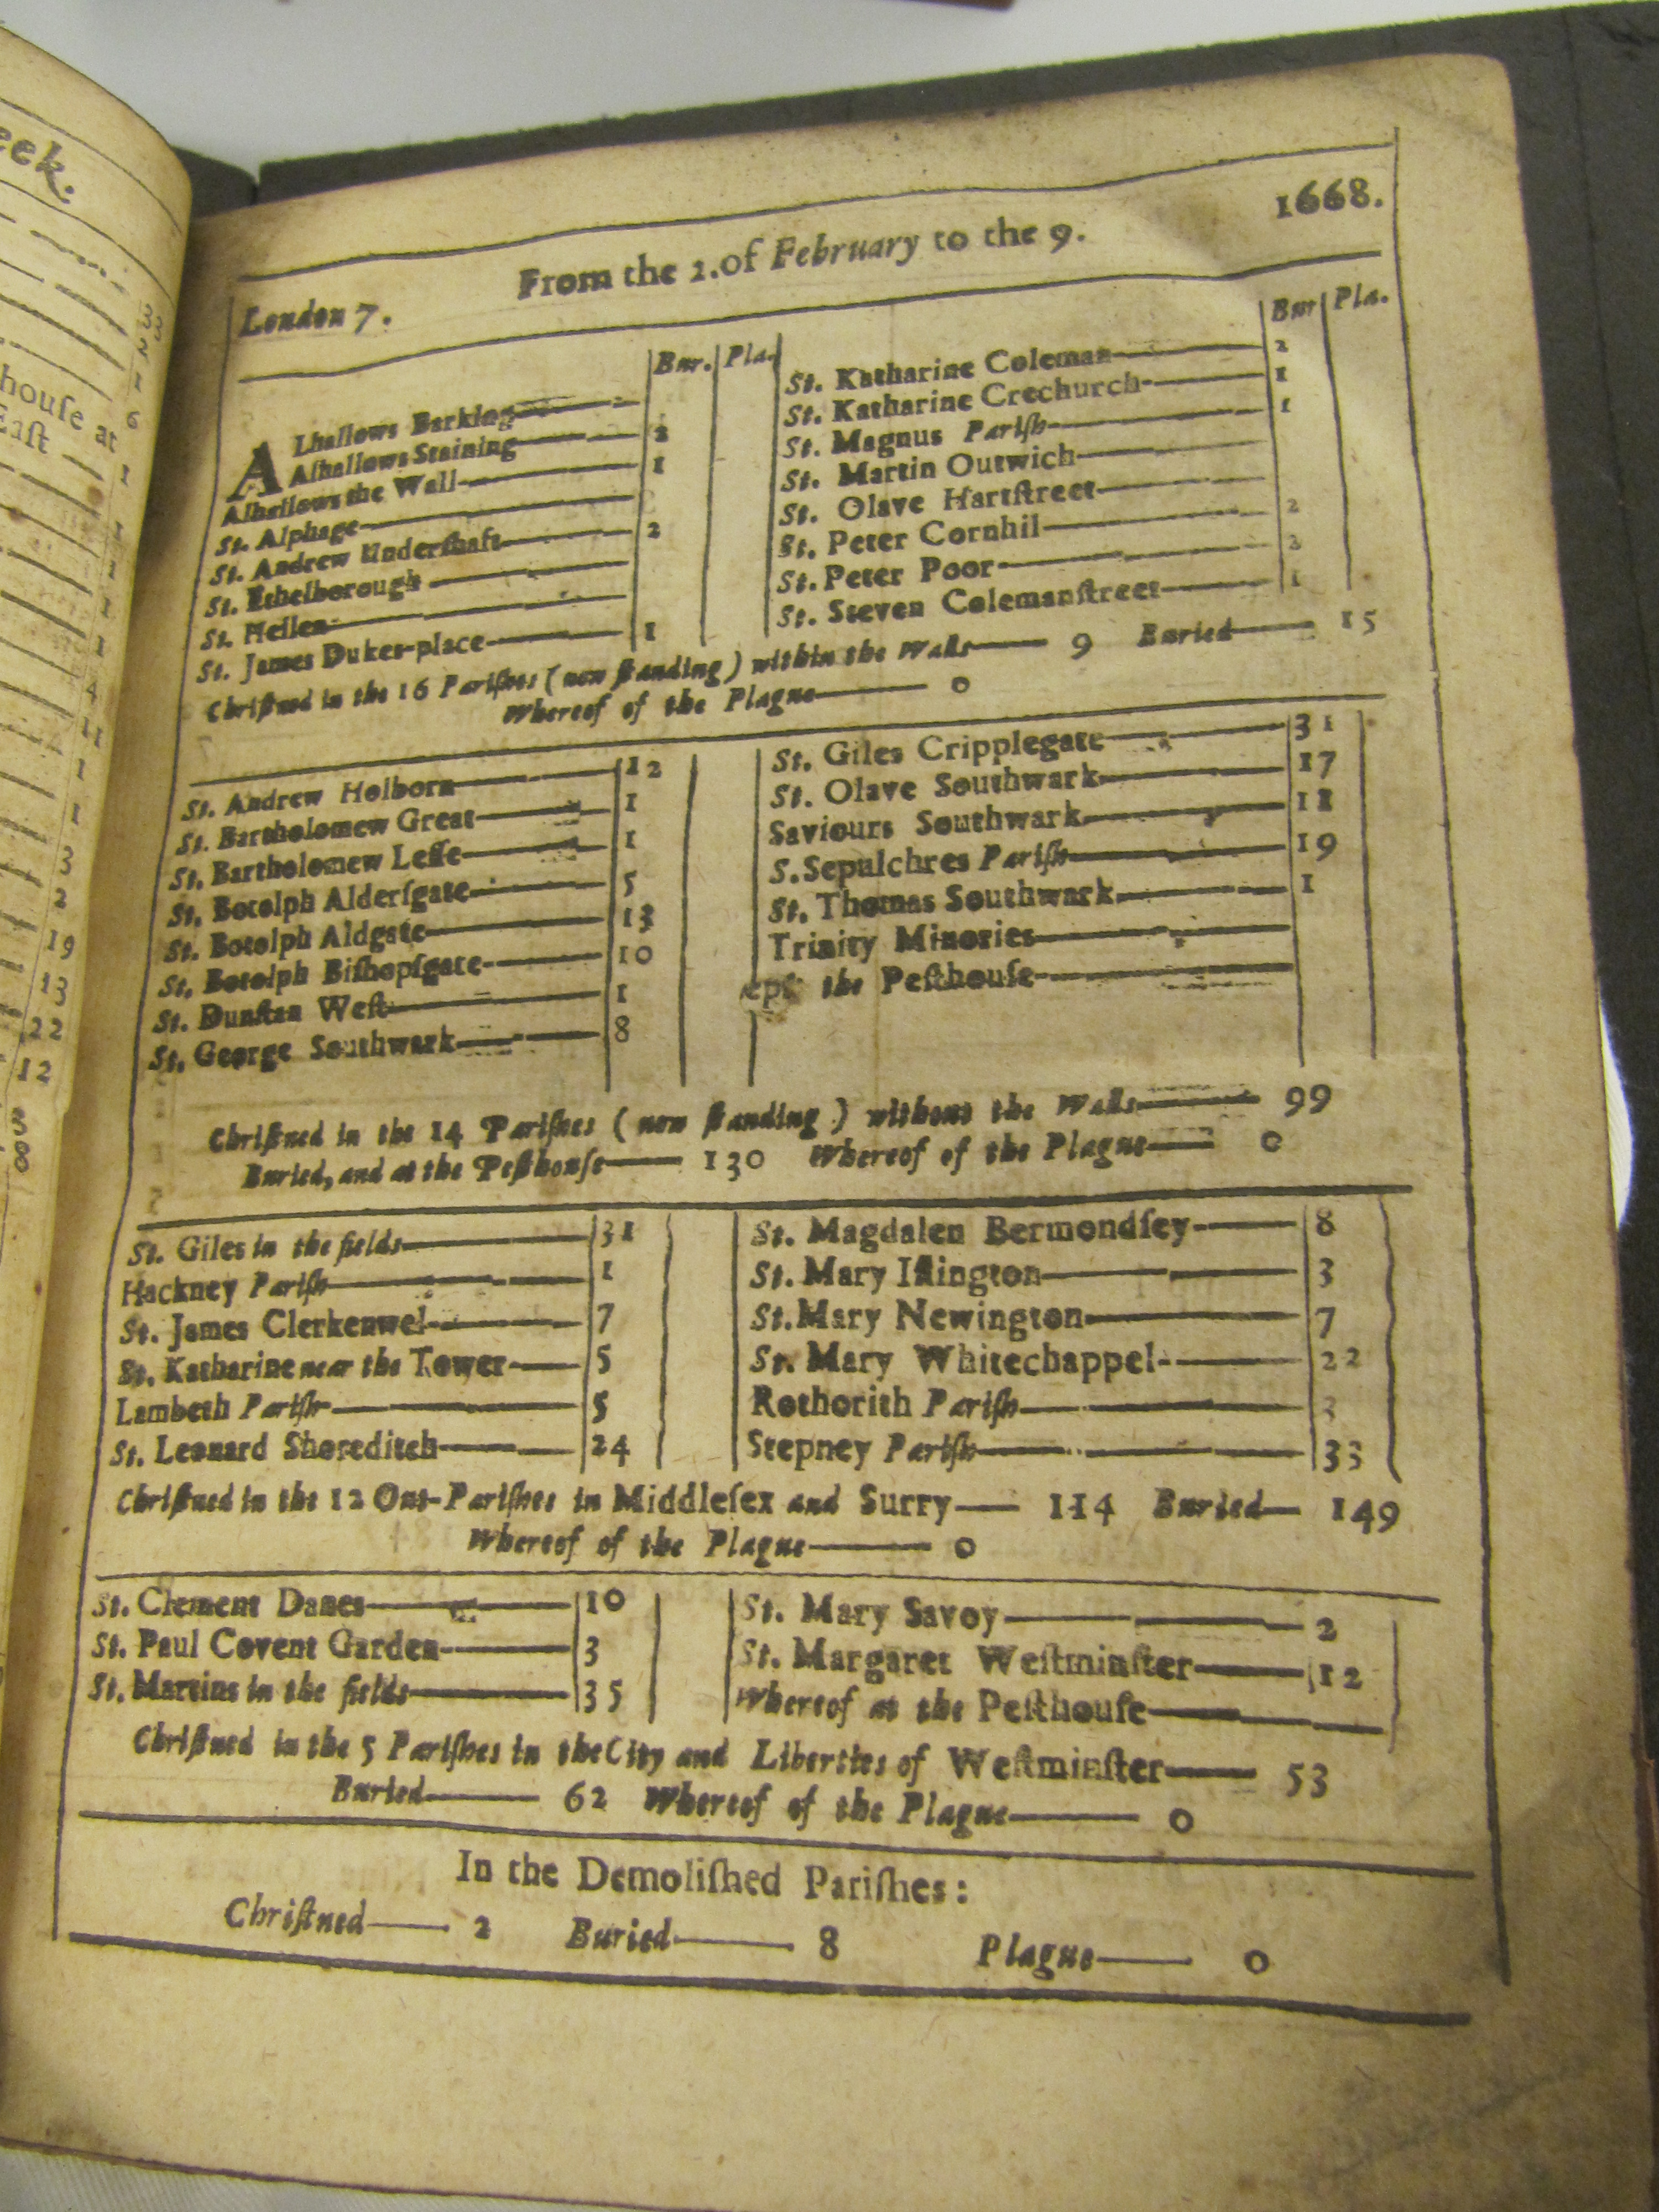 eek.
33
2
1
6
houſe at
Eaſt
1
1
1
1
1
4
11
1
1
3
2
19
13
22
12
3
8
1668.
From the 2. of February to the 9.
London 7.
Bur. Pla.
ALhallows Barking
Alhallows Staining 2
Alhallows the Wall 1
St. Alphage
St. Andrew Underſhaft 2
St. Ethelborough
St. Hellen
St. James Dukes-place 1
Bur Pla.
St. Katharine Coleman 2
St. Katharine Crechurch 1
St. Magnus Pariſh 1
St. Martin Outwich
St. Olave Hartſtreet
St. Peter Cornhil 2
St. Peter Poor 2
St. Steven Colemanſtreet 1
Chriſtned in the 16 Pariſhes (now ſtanding) within the Walls 9 Buried 15
Whereof of the Plague 0
St. Andrew Holborn 12
St. Bartholomew Great 1
St. Bartholomew Leſſe 1
St. Botolph Alderſgate 5
St. Botolph Aldgate 13
St. Botolph Biſhopſgate 10
St. Dunſtan Weſt 1
St. George Southwark 8
St. Giles Cripplegate 31
St. Olave Southwark 17
Saviours Southwark 11
S. Sepulchres Pariſh 19
St. Thomas Southwark 1
Trinity Minories
the Peſthouſe
Chriſtned in the 14 Pariſhes (now ſtanding) without the Walls 99
Buried, and at the Peſthouſe 130 Whereof of the Plague 0
St. Giles in the fields 31
Hackney Pariſh 1
St. James Clerkenwel 7
St. Katharine near the Tower 5
Lambeth Pariſh 5
St. Leonard Shoreditch 24
St. Magdalen Bermondſey 8
St. Mary Iſlington 3
St. Mary Newington 7
St. Mary Whitechappel 22
Rothorith Pariſh 3
Stepney Pariſh 33
Chriſtned in the 12 Out-Pariſhes in Middleſex and Surry 114 Buried 149
Whereof of the Plague 0
St. Clement Danes 10
St. Paul Covent Garden 3
St. Martins in the fields 35
St. Mary Savoy 2
St. Margaret Weſtminſter 12
Whereof at the Peſthouſe
Chriſtned in the 5 Pariſhes in the City and Liberties of Weſtminſter 53
Buried 62 Whereof of the Plague 0
In the Demoliſhed Pariſhes:
Chriſtned 2 Buried 8 Plague 0